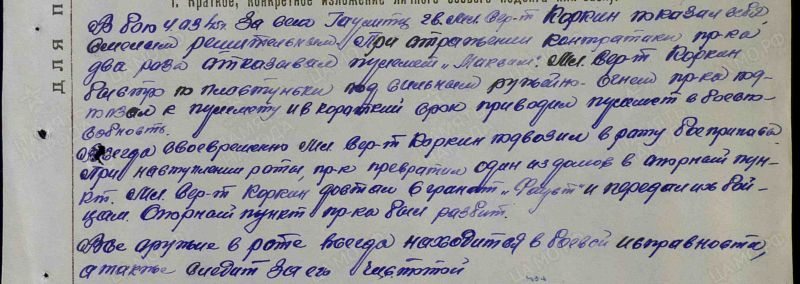 I. Краткое, конкретное изложение личного боевого подвига или заслуг
ДЛЯ П
В бою 4 аз 45г За село Гаумитц гв. Мл. Сер-т Коркин показал себя
смелым решительным. При отражении контратаки пр-ка
два раза отказывал пулемет „Максим". Мл. Сер-т Коркин
быстро по пластунски под сильным ружейно-огнем пр-ка под-
ползал к пулемету и в короткий срок приводил пулемет в боеспо-
собность.
Всегда своевременно Мл. Сер-т Коркин подвозил в роту боеприпасы.
При наступлении роты, пр-к превратил один из домов в опорный пун-
кт. Мл. Сер-т Коркин достал 6 гранат „Фауст" и передал их бой-
цам. Опорный пункт пр-ка был разбит.
Все оружие в роте всегда находится в боевой исправности,
а также следит за его чистотой